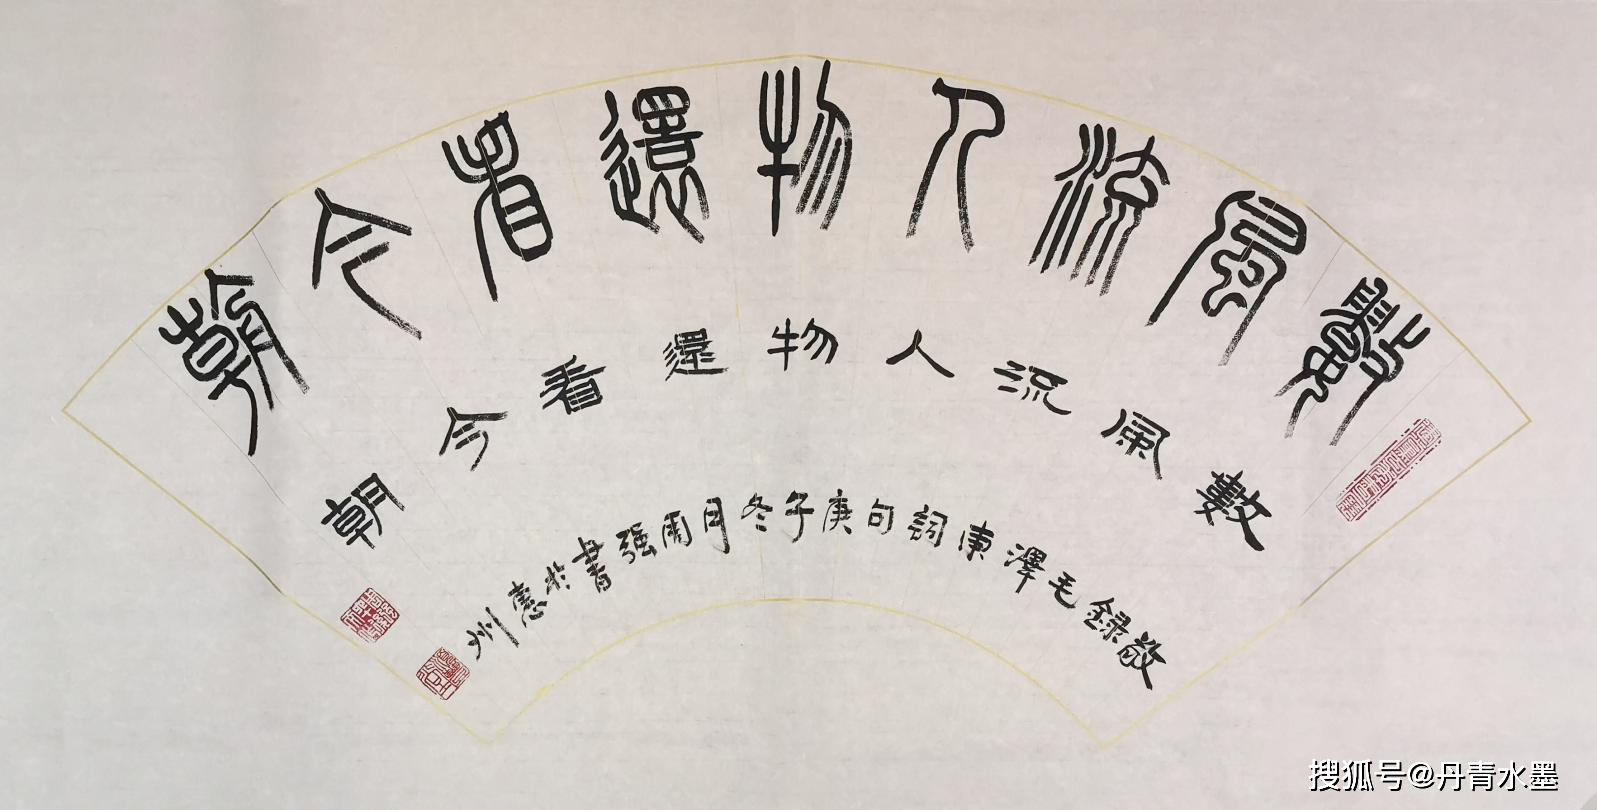 數風流人物還看今朝
數風流人物還看今朝
敬録毛澤東詞句庚子冬月周强書於惠州
搜狐号@丹青水墨